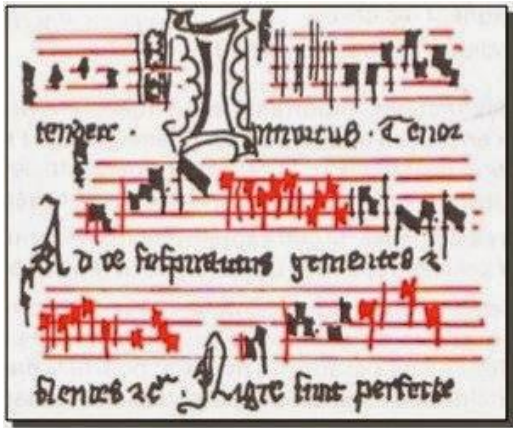 Introitus · Tenor
Ad te suspiramus gementes ⁊
flentes ⁊c̃ · Nigre sunt perfecte